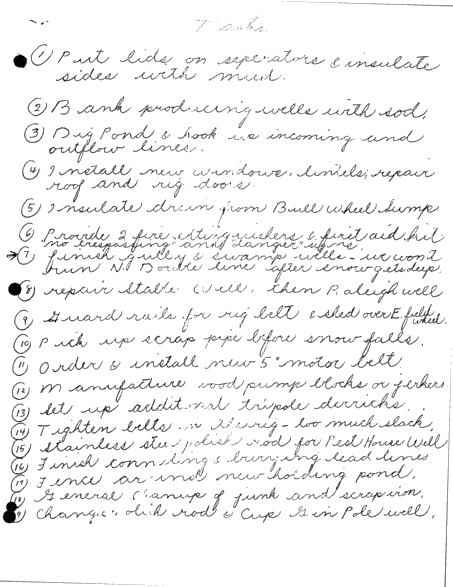 Tasks
① Put lids on seperators & insulate
sides with mud.
② Bank producing wells with sod.
③ Dig Pond & hook up incoming and
outflow lines.
④ Install new windows, lintels, repair
roof and rig doors.
⑤ Insulate drain from Bull Wheel Sump
⑥ Provide 2 fire extinguishers & first aid kit
no trespassing and danger signs.
→⑦ finish gulley & swamp wells - we wont
run N. Double line after snow gets deep.
⑧ repair Stable Well, then Raleigh well
⑨ Guard rails for rig belt & shed over E. field
wheel.
⑩ Pick up scrap pipe before snow falls.
⑪ Order & install new 5" motor belt
⑫ Manufacture wood pump blocks or jerkers
⑬ Set up additional tripole derricks.
⑭ Tighten belts in the rig - too much slack.
⑮ Stainless steel polish rod for Pest House Well
⑯ Finish connecting & burying lead lines
⑰ Fence around new holding pond.
⑱ General Cleanup of junk and scrap iron.
Change polish rod & Cup Gin Pole well.